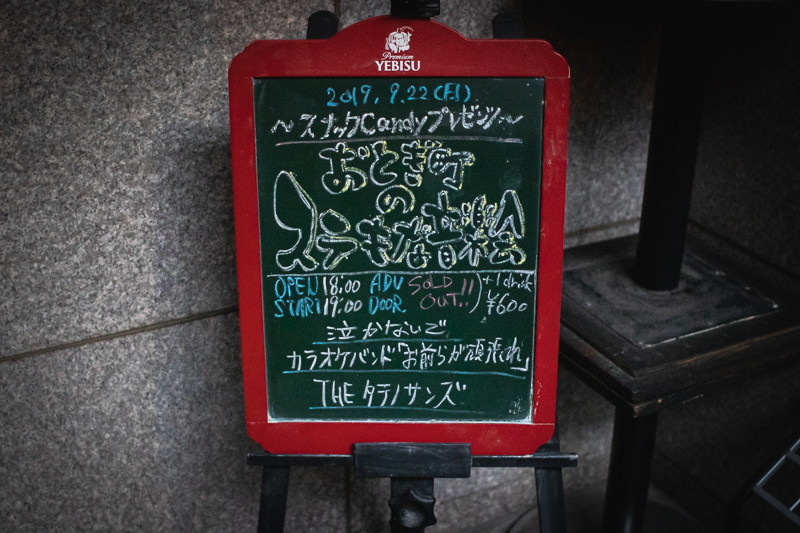 Premium
YEBISU
2019. 9.22(日)
〜スナックCandyプレゼンツ〜
おとぎ町
の
ステキな音楽会
OPEN 18:00 ADV SOLD +1drink
START 19:00 DOOR OUT!! ¥600
泣かないで
カラオケバンド「お前らが頑張れ」
THE タテノサンズ